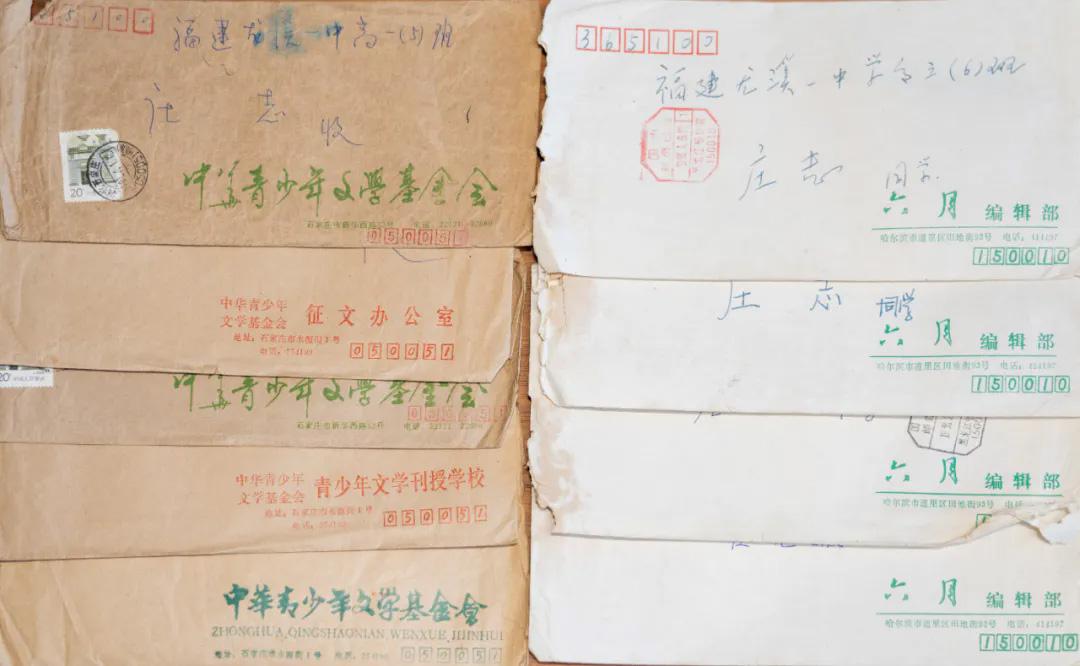 5100
福建尤溪一中高一(5)班
庄志
收
20
中华青少年文学基金会
石家庄市新华西路53号 电话
050051
中华青少年
文学基金会 征文办公室
地址:石家庄市水源街1号
050051
20
中华青少年文学基金会
石家庄市新华西路53号 电话
中华青少年
文学基金会 青少年文学刊授学校
地址:石家庄市水源街1号
050051
中华青少年文学基金会
ZHONGHUA QINGSHAONIAN WENXUE JIJINHUI
地址:石家庄市水源街1号 电话:
050051
365100
福建尤溪一中学高三(6)班
150010
庄志 同学
六月 编辑部
哈尔滨市道里区田地街93号 电话:414197
150010
庄志 同学
六月 编辑部
哈尔滨市道里区田地街93号 电话:414197
150010
六月 编辑部
哈尔滨市道里区田地街93号 电话
六月 编辑部
哈尔滨市道里区田地街93号 电话:414197
150010